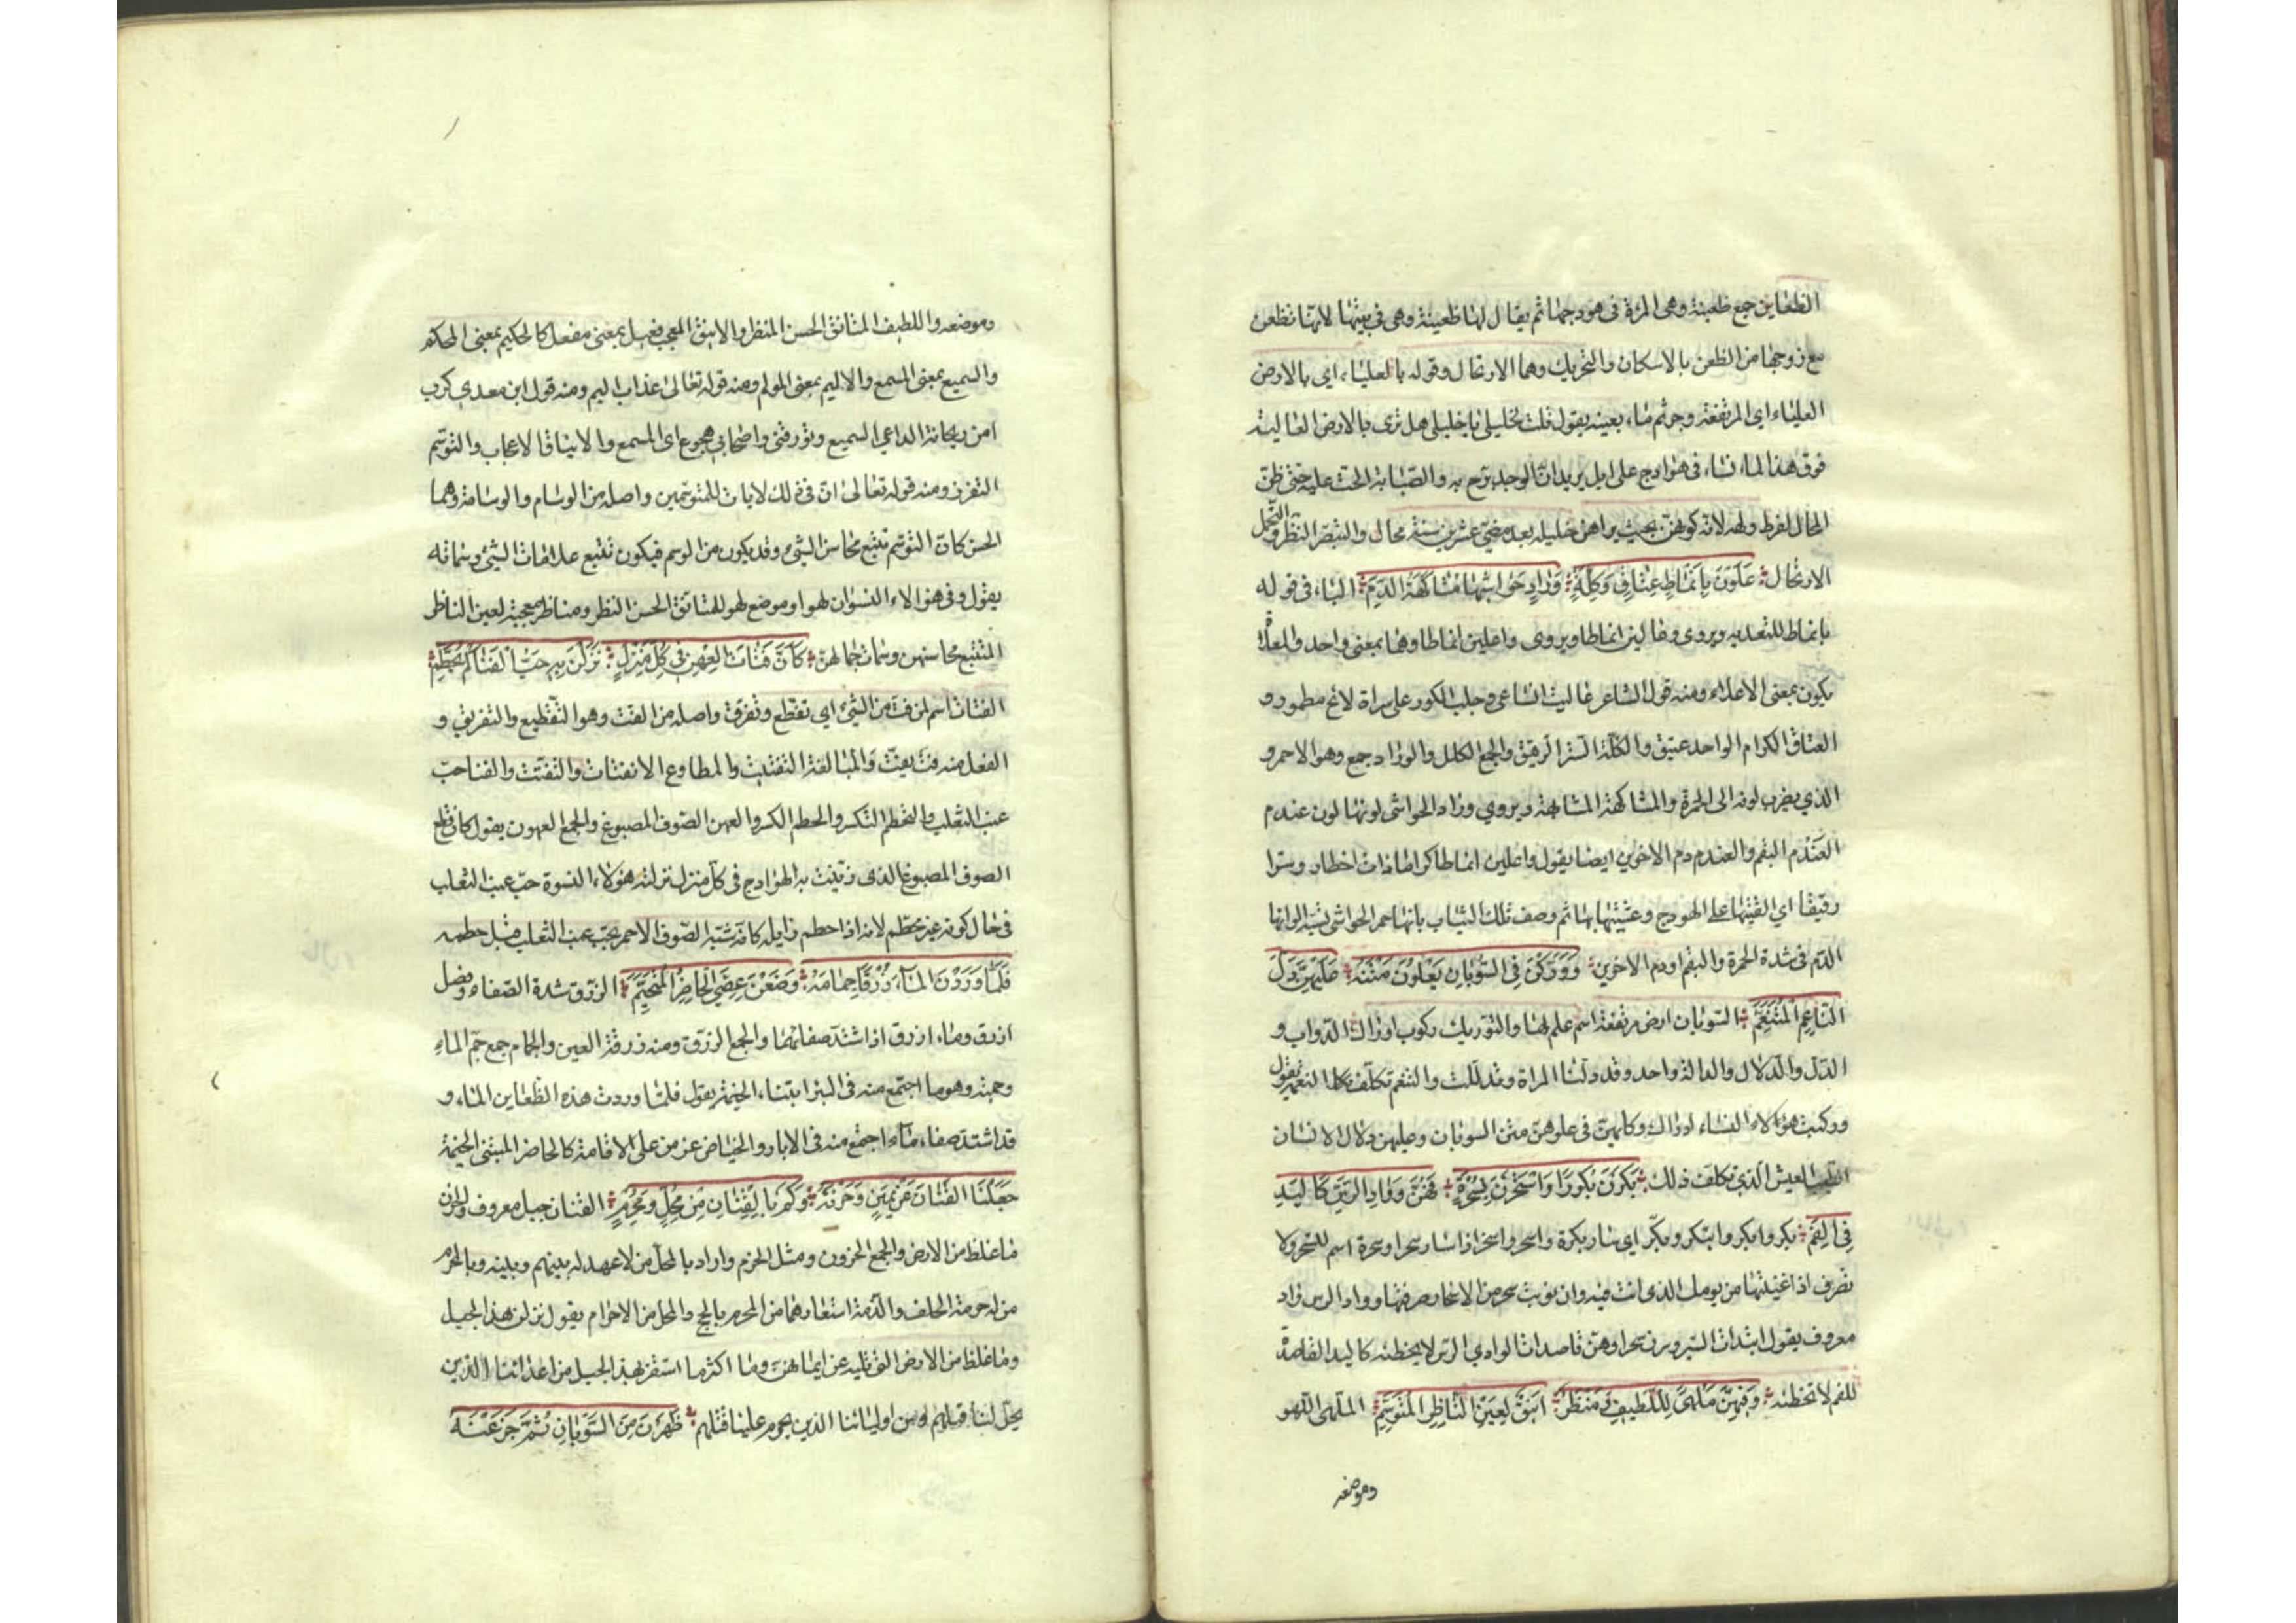 الظعاين جمع ظعينة وهي المرءة في هودجها ثم يقال لها ظعينة وهي في بيتها لانها تظعن
مع زوجها من الظعن بالاسكان والتحريك وهما الارتحال وقوله بالعلياء اي بالارض
العلياء اي المرتفعة وجرثم ماء بعينه يقول قلت لخليلي يا خليلي هل ترى بالارض العالية
فوق هذا الماء نساء في هوادج على ابل يريد ان الوجد برح به والصبابة الحت عليه حتى ظن
المحال لفرط ولهه لانه كونهن بحيث يراهن خليله بعد مضي عشرين سنة محال والتبصر النظر والتحمل
الارتحال علون بانماط عتاق وكلة وراد حواشيها مشاكهة الدم الباء في قوله
بانماط للتعدية ويروى وعالين انماطا ويروى واعلين انماطا وهما بمعنى واحد والمعلاة
يكون بمعنى الاعلاء ومنه قول الشاعر عاليت انساعي وجلب الكور على سراة لائح ممطور و
العتاق الكرام الواحد عتيق والكلة الستر الرقيق والجمع الكلل والوراد جمع وهو الاحمر و
الذي يضرب لونه الى الحمرة والمشاكهة المشابهة ويروي وراد الحواشى لونها لون عندم
العندم البقم والعندم دم الاخوين ايضا يقول واعلين انماطا كراما ذات اخطار وسترا
رقيقا اي القينها على الهودج وغشينها بها ثم وصف تلك الثياب بانها حمر الحواشى يشبه الوانها
الدم في شدة الحمرة والبقم او دم الاخوين ووركن في السوبان يعلون متنه عليهن دل
الناعم المتنعم السوبان ارض مرتفعة اسم علم لها والتوريك ركوب اوراك الدواب و
الدل والدلال والدالة واحد وقد دلت المراة وتدللت والتنعم تكلف النعمة يقول
وركبت هؤلاء النساء اوراك ركابهن في علوهن متن السوبان وعليهن دلال الانسان
الطيب العيش الذي تكلف ذلك بكرن بكورا واستحرن بسحرة فهن ووادي الرس كاليد
في الفم بكر وابكر وابتكر وبكر اي سار بكرة واسحر واستحر اذا سار سحرا وسحرة اسم للسحر ولا
تصرف اذا عنيتها من يومك الذي انت فيه وان نويت سحر من الاسحار صرفتها ووادي الرس واد
معروف يقول ابتدان السير وسرن سحرا وهن قاصدات لوادي الرس لا يخطئنه كاليد القاصدة
للفم لا تخطئه وفيهن ملهى للطيف ومنظر انيق لعين الناظر المتوسم الملهى اللهو
وموضعه
وموضعه واللطيف المتانق الحسن المنظر والانيق المعجب فعيل بمعنى مفعل كالحكيم بمعنى المحكم
والسميع بمعنى المسمع والاليم بمعنى المولم ومنه قوله تعالى عذاب اليم ومنه قول ابن معدي كرب
امن ريحانة الداعي السميع وتورقني واصحابي هجوع اي المسمع والايناق الاعجاب والتوسم
التفرس ومنه قوله تعالى ان في ذلك لايات للمتوسمين واصله من الوسام والوسامة وهما
الحسن كان التوسم تتبع محاسن الشيء وقد يكون من الوسم فيكون تتبع علامات الشيء وسماته
يقول وفي هؤلاء النسوان لهو او موضع لهو للمتانق الحسن النظر ومناظر معجبة لعين الناظر
المتتبع محاسنهن وسمات جمالهن كان فتات العهن في كل منزل نزلن به حب الفنا لم يحطم
الفتات اسم لما فت من الشيء اي تقطع وتفرق واصله من الفت وهو التقطيع والتفريق و
الفعل منه فت يفت والمبالغة التفتيت والمطاوع الانفتات والتفتت والفنا حب
عنب الثعلب والتحطم التكسر والحطم الكسر والعهن الصوف المصبوغ والجمع العهون يقول كان قطع
الصوف المصبوغ الذى زينت به الهوادج في كل منزل نزلته هؤلاء النسوة حب عنب الثعلب
في حال كونه غير محطم لانه اذا حطم زايله كانه شبه الصوف الاحمر بحب عنب الثعلب قبل حطمه
فلما وردن الماء زرقا جمامه وضعن عصي الحاضر المتخيم الزرق شدة الصفاء ونصل
ازرق وماء ازرق اذا اشتد صفائهما والجمع الزرق ومنه زرقة العين والجمام جمع جم الماء
وجمته وهو ما اجتمع منه في البئر ابتناء الخيمة يقول فلما وردت هذه الظعاين الماء و
قد اشتد صفاء ماء اجتمع منه في الابار والحياض عزمن على الاقامة كالحاضر المبتنى الخيمة
جعلنا القنان عن يمين وحزنه وكم بالقنان من محل ومحرم القنان جبل معروف والحزن
ما غلظ من الارض والجمع الحزون ومثل الحزم واراد بالمحل من لا عهد له بينهم وبينه وبالمحرم
من له حرمة الحلف والذمة استعارهما من المحرم بالحج والمحل من الاحرام يقول نزلن هذا الجبل
وما غلظ من الارض التى تليه عن ايمانهن وما اكثر ما استقر بهذا الجبل من اعدائنا الذين
يحل لنا قتلهم ومن اوليائنا الذين يحرم علينا قتلهم ظهرن من السوبان ثم جزعنه